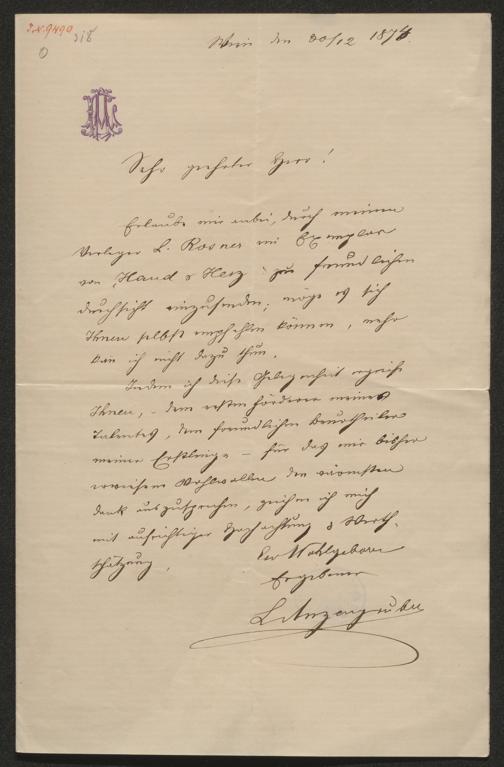 J.N. 9490
Wien den 30/12 1874.
Sehr geehrter Herr!
Erlaube mir anbei, durch meinen
Verleger L. Rosner ein Exemplar
von „Hand & Herz" zu freundlichen
Durchsicht einzusenden; möge es sich
Ihnen selbst empfehlen können, mehr
kan ich nicht dazu thun.
Indem ich diese Gelegenheit ergreife
Ihnen, – dem ersten Förderer meines
Talentes, dem freundlichen Beurtheiler
meiner Erstlinge – für das mir bisher
erwiesene Wohlwollen den wärmsten
Dank auszusprechen, zeichne ich mich
mit aufrichtiger Hochachtung & Werth-
schätzung,
Euer Wohlgeboren
Ergebener
L Anzengruber